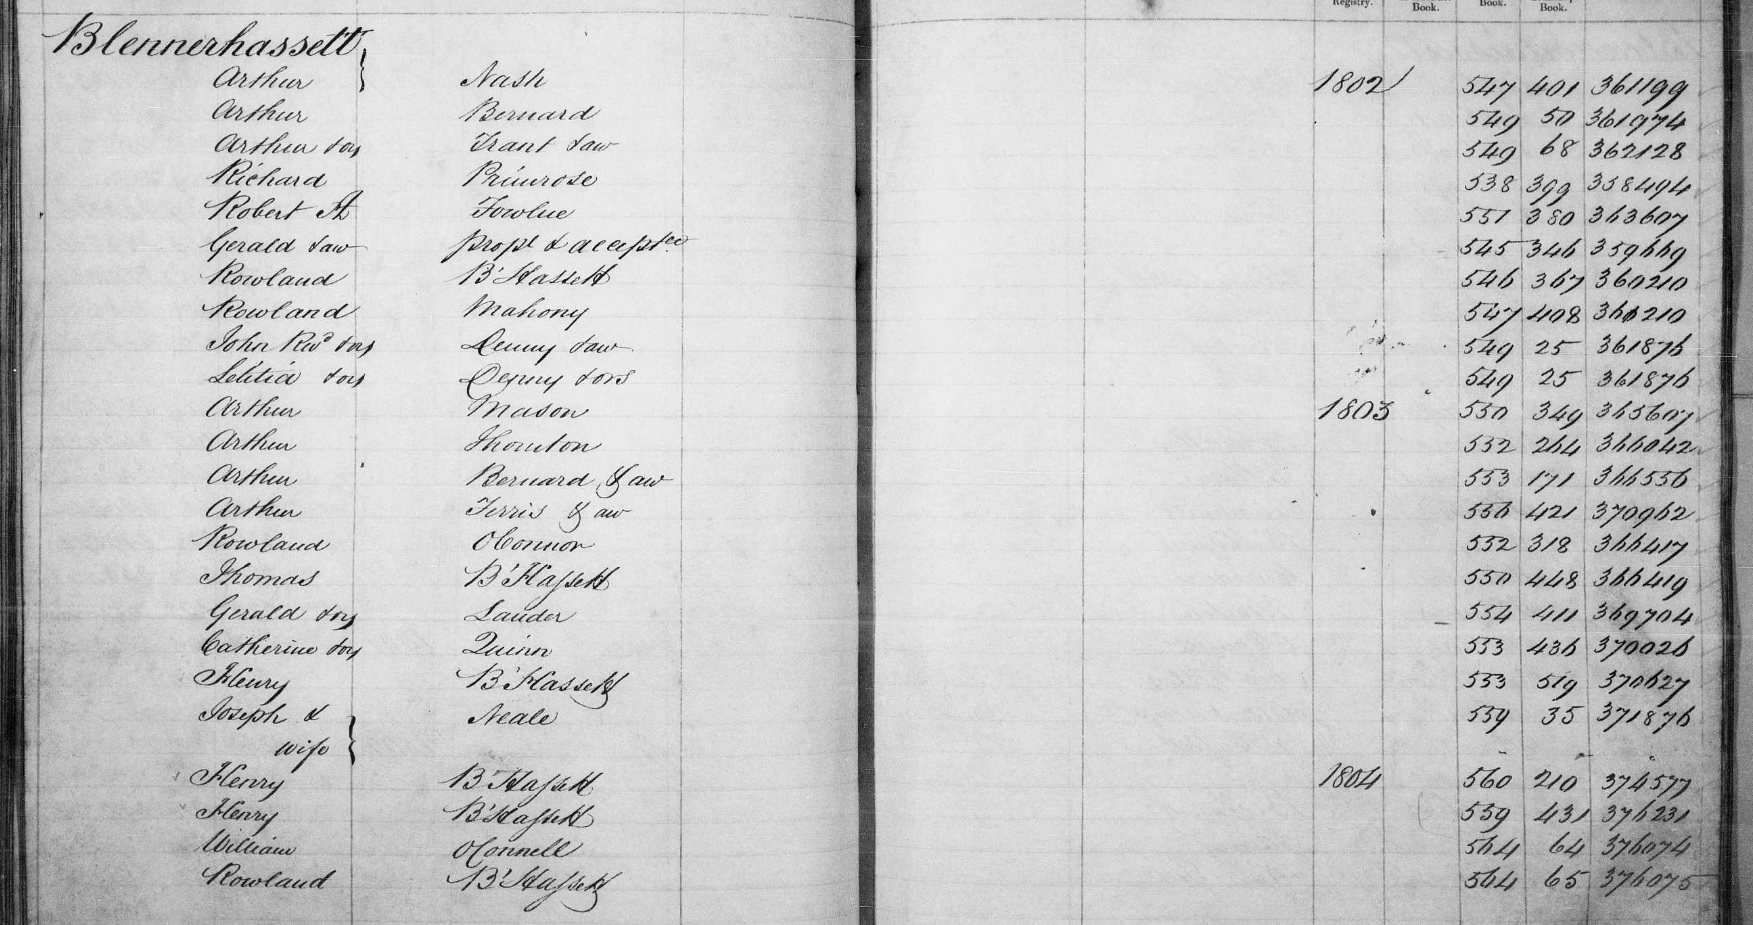 Registry. Book. Book. Book.
Blennerhassett
Arthur Nash 1802 547 401 361199
Arthur Bernard 549 50 361974
Arthur & ors Trant & anr 549 68 362128
Richard Primrose 538 399 358494
Robert A Fowlue 551 380 363607
Gerald & anr Propl & accepted 545 346 359669
Rowland B'Hassett 546 367 360210
Rowland Mahony 547 408 366210
John Revd & ors Denny & anr 549 25 361876
Letitia & ors Denny & ors 549 25 361876
Arthur Mason 1803 550 349 365607
Arthur Thornton 552 264 366042
Arthur Bernard & anr 553 171 366556
Arthur Ferris & anr 556 421 370962
Rowland OConnor 552 318 366417
Thomas B'Hassett 550 448 366419
Gerald & ors Lauder 554 411 369704
Catherine & ors Quinn 553 436 370026
Henry B'Hassett 553 519 370627
Joseph & Neale 559 35 371876
wife
Henry B'Hassett 1804 560 210 374577
Henry B'Hassett 559 431 376231
William OConnell 564 64 376074
Rowland B'Hassett 564 65 376075